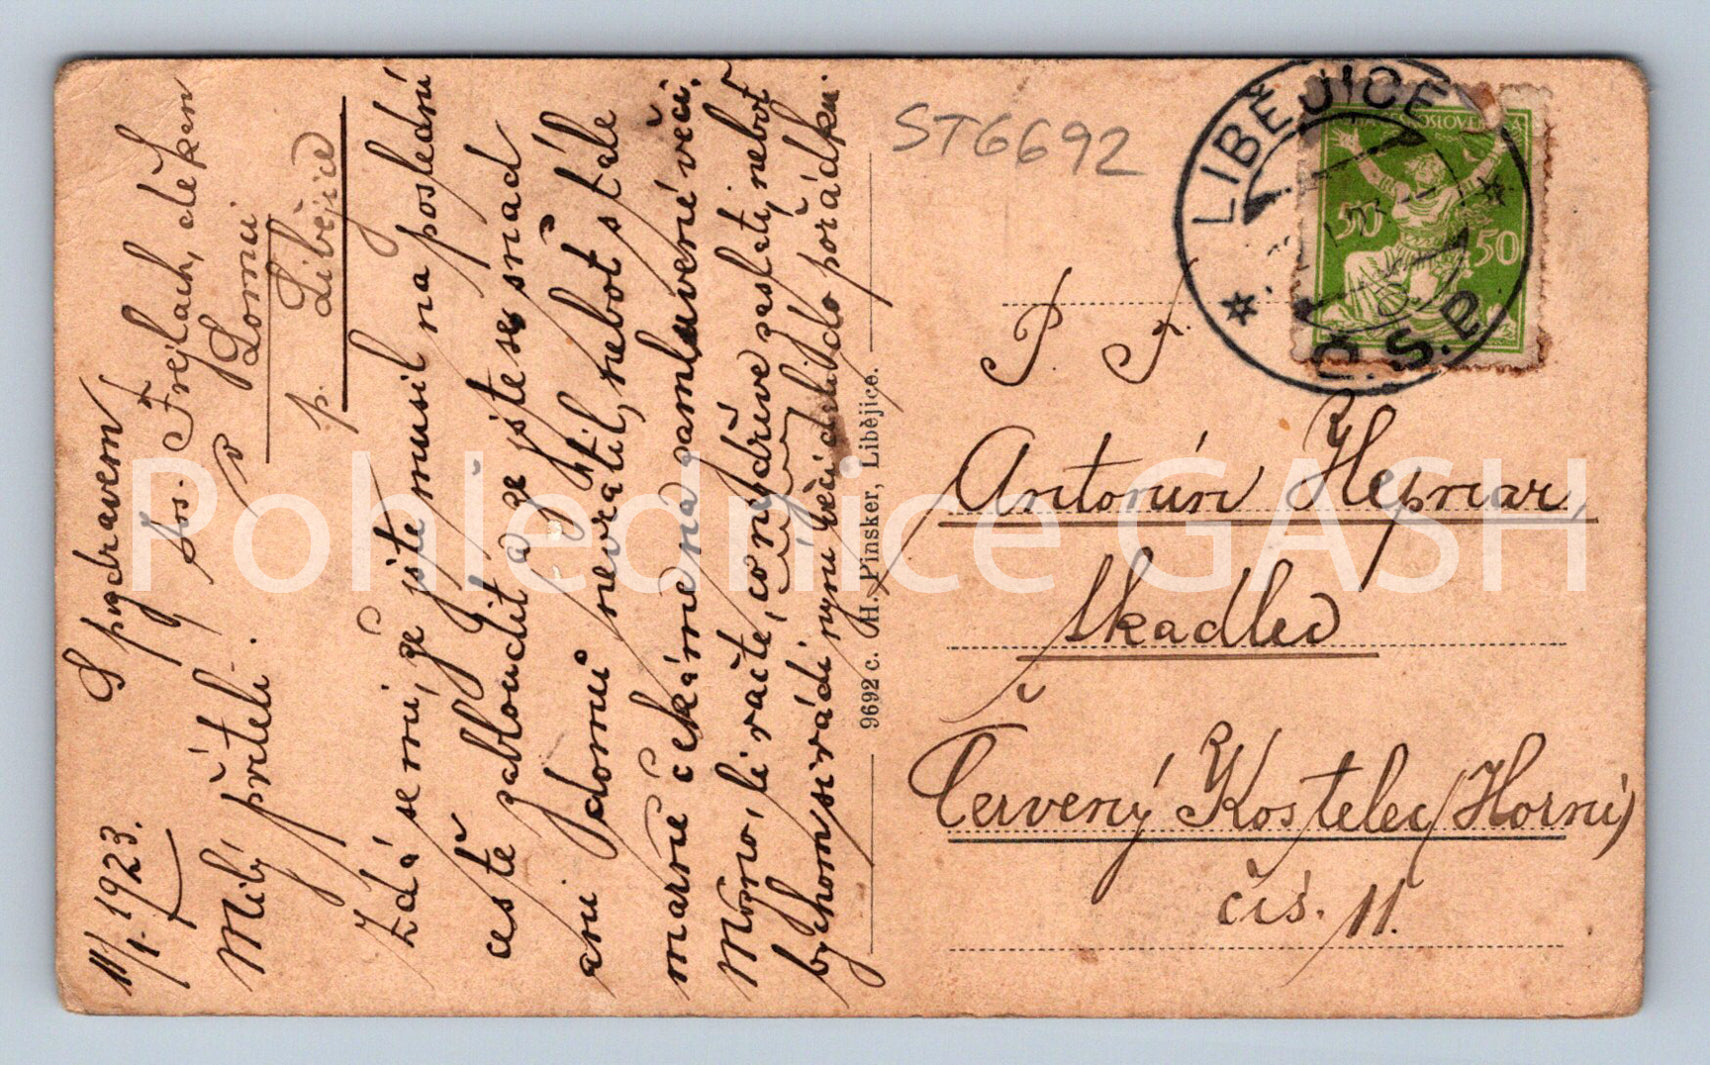 11/1. 1923.
Milý příteli.
Zdá se mi, že jste musil na poslední
cestě zabloudit a že jste se snad
ani domů nevrátil, neboť stále
marně čekáme na zamluvené věci.
Možno, li račte, co nejdříve zaslati, neboť
bychom si rádi nyní věci dali do pořádku.
S pozdravem
Jos. Frejlach, děken
v Lomci
p. Libějice
9692 c. H. Pinsker, Libějice.
ST6692
LIBĚJICE
Č.S.P.
ČESKOSLOVENSKÁ
50 50
P. T.
Antonín Hepnar,
tkadlec
Červený Kostelec (Horní)
čís. 11.
Pohlednice GASH